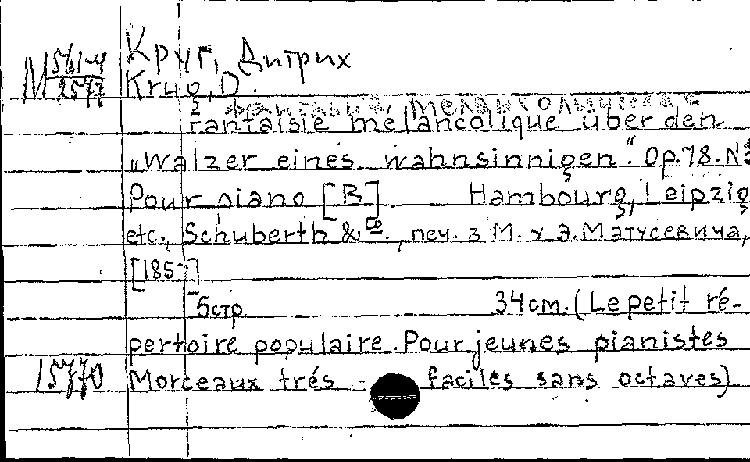 М 561-4 Круг, Дитрих
2577 Krug, D.
Фантазия, меланхолическая
Fantaisie mélancolique über den
„Walzer eines wahnsinnigen". Op.78. №
Pour piano [B ]. Hambourg, Leipzig
etc., Schuberth & Co., печ. з М. у Э. Матусевича,
[185-]
5 стр. 34 cm. (Le petit ré-
pertoire populaire. Pour jeunes pianistes
15770 Morceaux trés - faciles sans octaves)